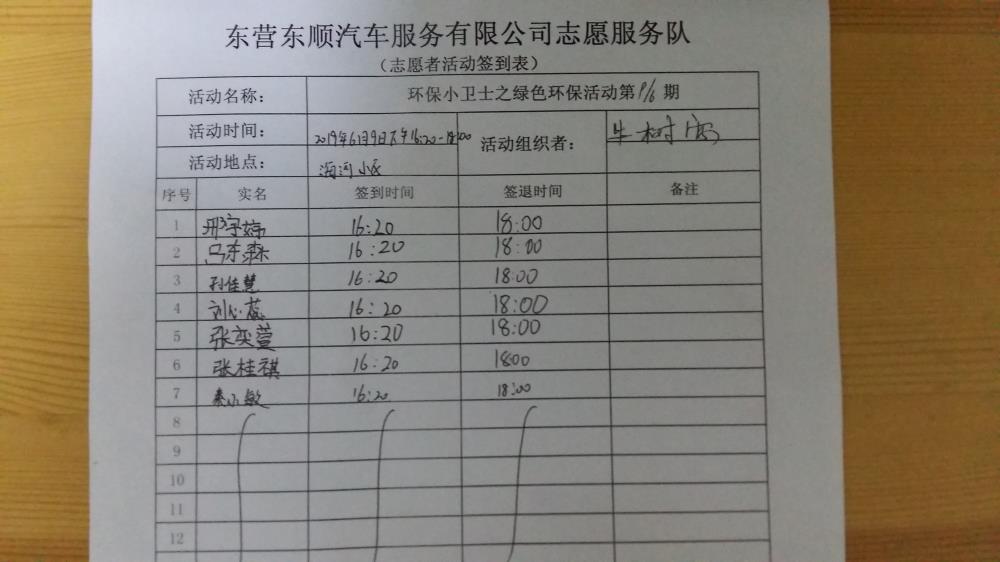 东营东顺汽车服务有限公司志愿服务队
（志愿者活动签到表）
活动名称： 环保小卫士之绿色环保活动第 期
活动时间： 2019年6月9日下午16:20-18:00 活动组织者： 牛树
活动地点： 海河小区
序号 实名 签到时间 签退时间 备注
1 邢宇婷 16:20 18:00
2 马东森 16:20 18:00
3 孙佳慧 16:20 18:00
4 刘心蕊 16:20 18:00
5 张奕萱 16:20 18:00
6 张桂祺 16:20 18:00
7 秦小敏 16:20 18:00
8
9
10
11
12